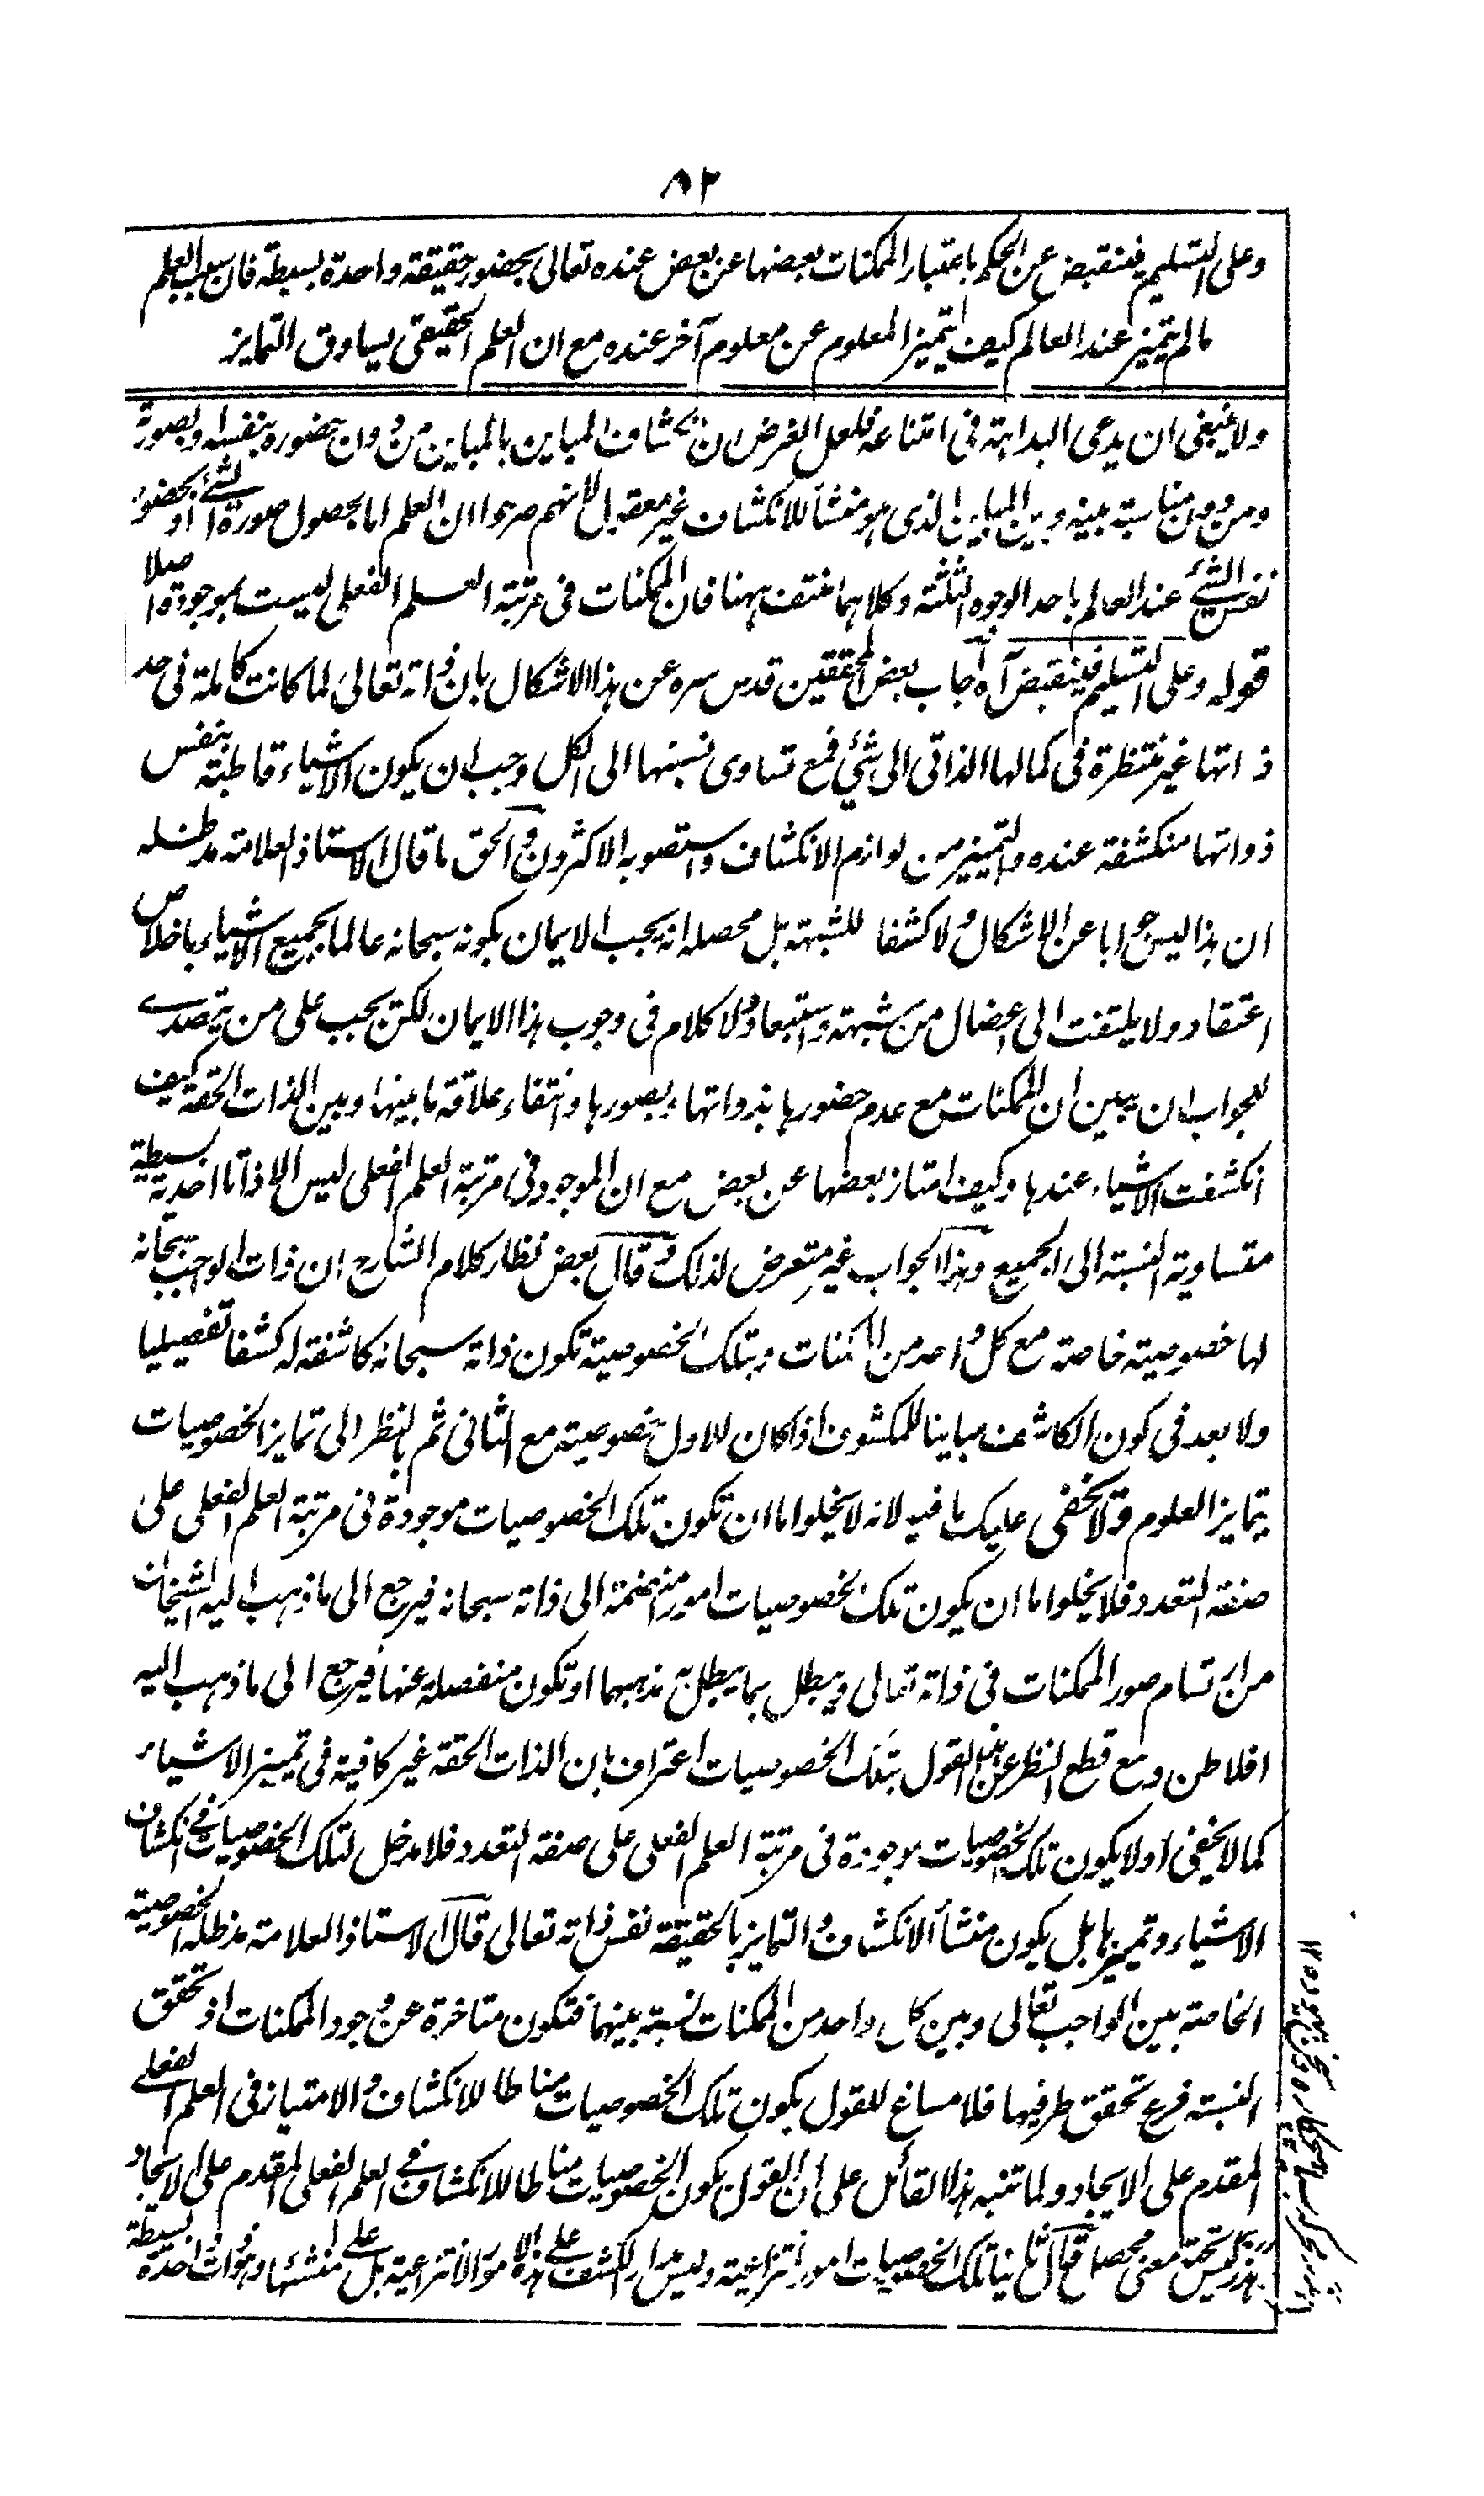 ٨٢
وعلى التسليم فنقبض عن الحكم باعتبار الممكنات بعضها عن بعض عنده تعالى بحضور حقيقة واحدة بسيطة فان سبب العلم
مالم يتميز عند العالم كيف يتميز المعلوم عن معلوم آخر عنده مع ان العلم الحقيقي يساوق التمايز
ولا ينبغي ان يدعى البداهة في امتناعه فلعل الغرض ان انكشاف المباين بالمباين من دون حضوره بنفسه او بصورته
ومن دون مناسبة بينه وبين المباين الذي هو منشأ للانكشاف غير معقول لانهم صرحوا ان العلم اما بحصول صورة الشئ او بحضور
نفس الشئ عند العالم باحد الوجوه الثلثة وكلاهما منتف ههنا فان الممكنات في مرتبة العلم الفعلي ليست بموجودة اصلا
قوله وعلى التسليم فينقبض آه اجاب بعض المحققين قدس سره عن هذا الاشكال بان ذاته تعالى لما كانت كاملة في حد
ذاتها غير منتظرة في كمالها الذاتي الى شئ فمع تساوى نسبتها الى الكل وجب ان يكون الاشياء قاطبة بنفس
ذواتها منكشفة عنده والتميز من لوازم الانكشاف واستصوبه الاكثرون والحق ما قال الاستاذ العلامة مدظله
ان هذا ليس جوابا عن الاشكال ولا كشفا للشبهة بل محصله انه يجب الايمان بكونه سبحانه عالما بجميع الاشياء باخلاص
اعتقاد ولا يلتفت الى اعضال من شبهة واستبعاد ولا كلام في وجوب هذا الايمان لكن يجب على من يتصدى
للجواب ان يبين ان الممكنات مع عدم حضورها بذواتها وبصورها وانتفاء علاقة ما بينها وبين الذات الحقة كيف
انكشفت الاشياء عندها وكيف امتاز بعضها عن بعض مع ان الموجود في مرتبة العلم الفعلي ليس الا ذاتا احدية بسيطة
متساوية النسبة الى الجميع وهذا الجواب غير متعرض لذلك وقال بعض نظار كلام الشارح ان ذات الواجب سبحانه
لها خصوصية خاصة مع كل واحد من الممكنات وبتلك الخصوصية تكون ذاته سبحانه كاشفة له كشفا تفصيليا
ولا بعد في كون الكاشف مباينا للمكشوف اذا كان للاول خصوصية مع الثاني ثم بالنظر الى تمايز الخصوصيات
يتمايز العلوم ولا يخفى عليك ما فيه لانه لا يخلو اما ان تكون تلك الخصوصيات موجودة في مرتبة العلم الفعلي على
صفة التعدد فلا يخلو اما ان يكون تلك الخصوصيات امورا منضمة الى ذاته سبحانه فيرجع الى ما ذهب اليه الشيخان
من ارتسام صور الممكنات في ذاته تعالى ويبطل بما يبطل به مذهبهما او تكون منفصلة عنها فيرجع الى ما ذهب اليه
افلاطن ومع قطع النظر عن هذا القول بتلك الخصوصيات اعتراف بان الذات الحقة غير كافية في تميز الاشياء
كما لا يخفى او لا يكون تلك الخصوصيات موجودة في مرتبة العلم الفعلي على صفة التعدد فلا مدخل لتلك الخصوصيات في انكشاف
الاشياء وتميزها بل يكون منشأ الانكشاف والتمايز بالحقيقة نفس ذاته تعالى قال الاستاذ العلامة مدظله الخصوصية
الخاصة بين الواجب تعالى وبين كل واحد من الممكنات نسبة بينهما فتكون متاخرة عن وجود الممكنات اذ تحقق
النسبة فرع تحقق طرفيها فلا مساغ للقول بكون تلك الخصوصيات مناطا للانكشاف والامتياز في العلم الفعلي
المقدم على الايجاد ولما تنبه هذا القائل على ان القول بكون الخصوصيات مناطا للانكشاف في العلم الفعلي المقدم على الايجاد
ليس تحته معنى محصل قال ثانيا تلك الخصوصيات امور انتزاعية وليس مدار الكشف على هذه الامور الانتزاعية بل على منشئها وهو ذات واحدة بسيطة